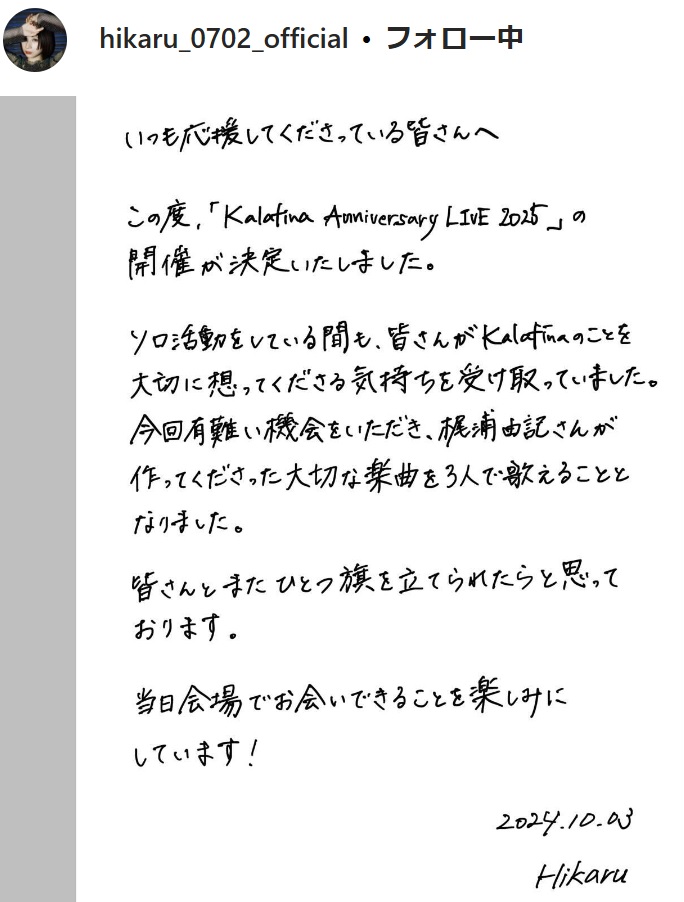 hikaru_0702_official • フォロー中
いつも応援してくださっている皆さんへ
この度、「Kalafina Anniversary LIVE 2025」の
開催が決定いたしました。
ソロ活動をしている間も、皆さんがKalafinaのことを
大切に想ってくださる気持ちを受け取っていました。
今回有難い機会をいただき、梶浦由記さんが
作ってくださった大切な楽曲を3人で歌えることと
なりました。
皆さんとまたひとつ旗を立てられたらと思って
おります。
当日会場でお会いできることを楽しみに
しています!
2024.10.03
Hikaru